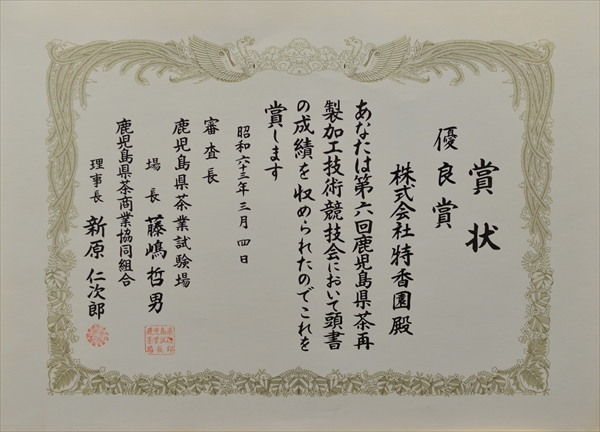 賞状
優良賞
株式会社特香園殿
あなたは第六回鹿児島県茶再
製加工技術競技会において頭書
の成績を収められたのでこれを
賞します
昭和六十三年三月四日
審査長
鹿児島県茶業試験場
場長 藤嶋哲男
鹿児島県茶商業協同組合
理事長 新原仁次郎